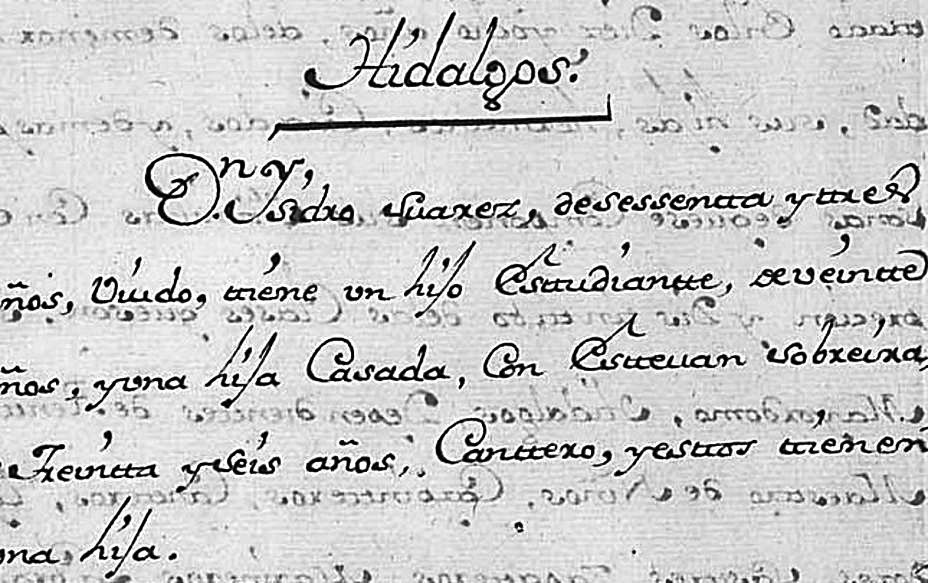 Hidalgos.
D.n Ysidro Suarez, desessentta y ttres
ños, Viudo, ttiene vn hijo Esttudiantte, de veintte
ños, y vna hija Casada, Con Estteuan Sobreira,
Treintta y seis años, Canttero, y esttos ttienen
una hija.